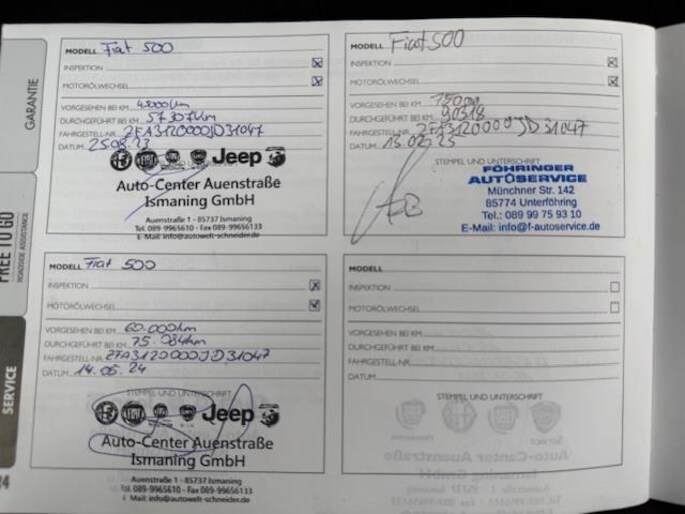 GARANTIE
FREE TO GO
ROADSIDE ASSISTANCE
SERVICE
MODELL Fiat 500
INSPEKTION
MOTORÖLWECHSEL
VORGESEHEN BEI KM 45000km
DURCHGEFÜHRT BEI KM 57307km
FAHRGESTELL-NR.
DATUM 25.08.23
Jeep
Auto-Center Auenstraße
Ismaning GmbH
Auenstraße 1 - 85737 Ismaning
Tel. 089-9965610 - Fax 089-99656133
E-Mail: info@autowelt-schneider.de
MODELL Fiat 500
INSPEKTION
MOTORÖLWECHSEL
VORGESEHEN BEI KM 60.000km
DURCHGEFÜHRT BEI KM 75.084km
FAHRGESTELL-NR. ZFA3120000JD31047
DATUM 14.06.24
STEMPEL UND UNTERSCHRIFT
Jeep
Auto-Center Auenstraße
Ismaning GmbH
Auenstraße 1 - 85737 Ismaning
Tel. 089-9965610 - Fax 089-99656133
E-Mail: info@autowelt-schneider.de
MODELL Fiat 500
INSPEKTION
MOTORÖLWECHSEL
VORGESEHEN BEI KM
DURCHGEFÜHRT BEI KM 90318
FAHRGESTELL-NR. ZFA3120000JD31047
DATUM
STEMPEL UND UNTERSCHRIFT
FÖHRINGER
AUTOSERVICE
Münchner Str. 142
85774 Unterföhring
Tel.: 089 99 75 93 10
E-Mail: info@f-autoservice.de
MODELL
INSPEKTION
MOTORÖLWECHSEL
VORGESEHEN BEI KM
DURCHGEFÜHRT BEI KM
FAHRGESTELL-NR.
DATUM
STEMPEL UND UNTERSCHRIFT